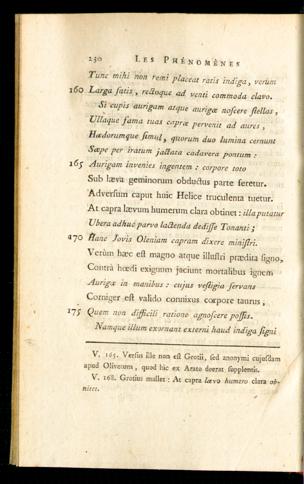 230 LES PHÉNOMÈNES
Tunc mihi non remi placeat ratis indiga, verùm
160 Larga satis, rectoque ad venti commoda clavo.
Si cupis aurigam atque aurigæ noscere stellas,
Ullaque fama suas capræ pervenit ad aures,
Hædorumque simul, quorum duo lumina cernunt
Sæpe per iratum jactata cadavera pontum :
165 Aurigam invenies ingentem : corpore toto
Sub læva geminorum obductus parte feretur.
Adversum caput huic Helice truculenta tuetur.
At capra lævum humerum clara obtinet : illa putatur
Ubera adhuc parvo lactenda dedisse Tonanti ;
170 Hanc Jovis Oleniam capram dixere ministri.
Verùm hæc est magno atque illustri prædita signo,
Contrà hœdi exiguum jaciunt mortalibus ignem
Aurigæ in manibus : cujus vestigia servans
Corniger est valido connixus corpore taurus,
175 Quem non difficili ratione agnoscere possis.
Namque illum exornant externi haud indiga signi
V. 165. Versus ille non est Grotii, sed anonymi cujusdam
apud Olivetum, quod hic ex Arato deerat supplentis.
V. 168. Grotius mallet : At capra lævo humero clara ob-
nitet.